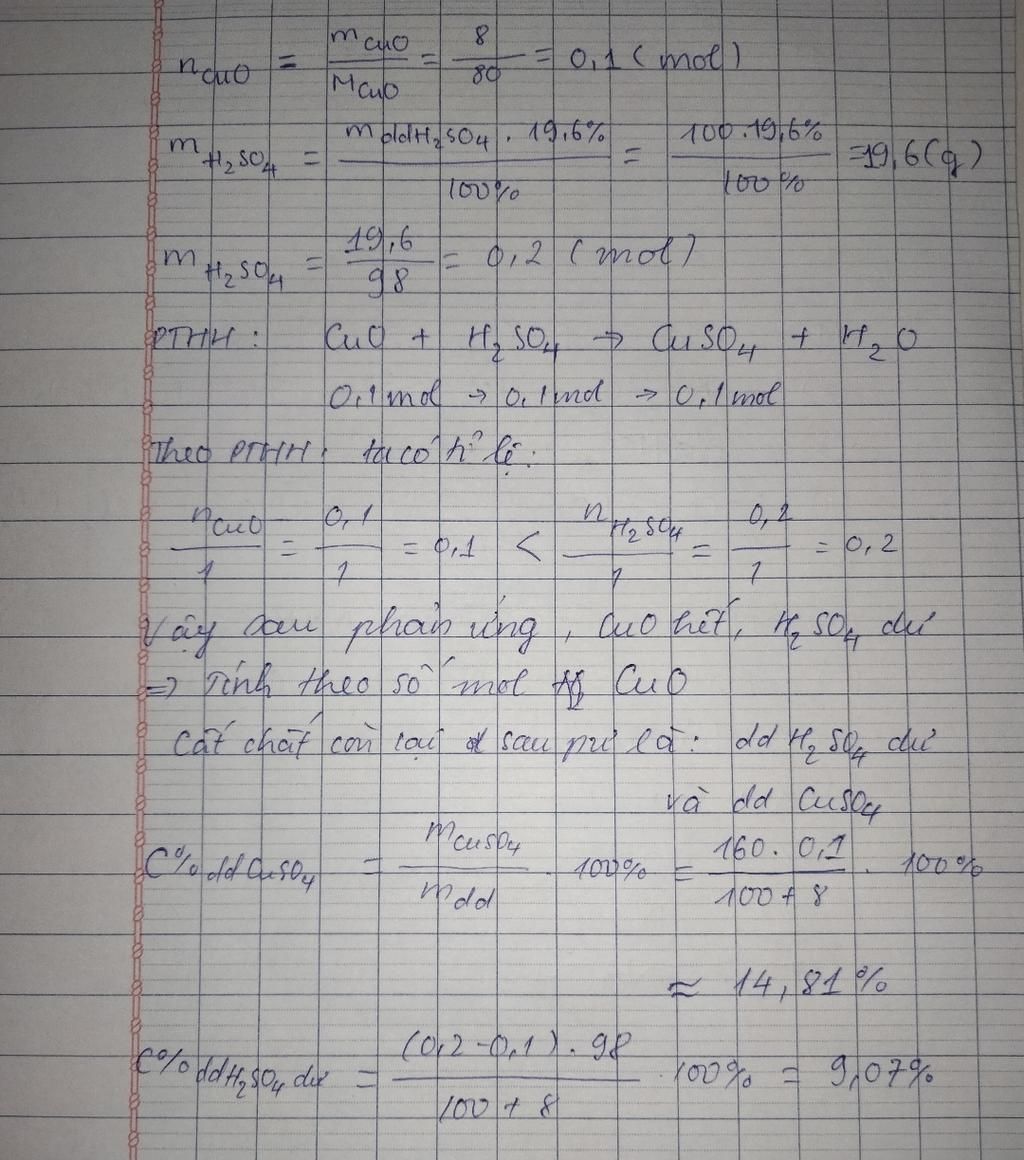 n CuO = m CuO / M CuO = 8 / 80 = 0,1 (mol)
m H₂SO₄ = m dd H₂SO₄ . 19,6% / 100% = 100 . 19,6% / 100% = 19,6 (g)
m H₂SO₄ = 19,6 / 98 = 0,2 (mol)
PTHH : CuO + H₂SO₄ → CuSO₄ + H₂O
0,1 mol → 0,1 mol → 0,1 mol
Theo PTHH, ta có tỉ lệ:
n CuO / 1 = 0,1 / 1 = 0,1 < n H₂SO₄ / 1 = 0,2 / 1 = 0,2
Vậy sau phản ứng, CuO hết, H₂SO₄ dư
⇒ Tính theo số mol CuO
Cát chất còn lại sau pư là: dd H₂SO₄ dư
và dd CuSO₄
C% dd CuSO₄ = m CuSO₄ / m dd . 100% = 160 . 0,1 / 100 + 8 . 100%
≈ 14,81%
C% dd H₂SO₄ dư = (0,2 - 0,1) . 98 / 100 + 8 . 100% = 9,07%